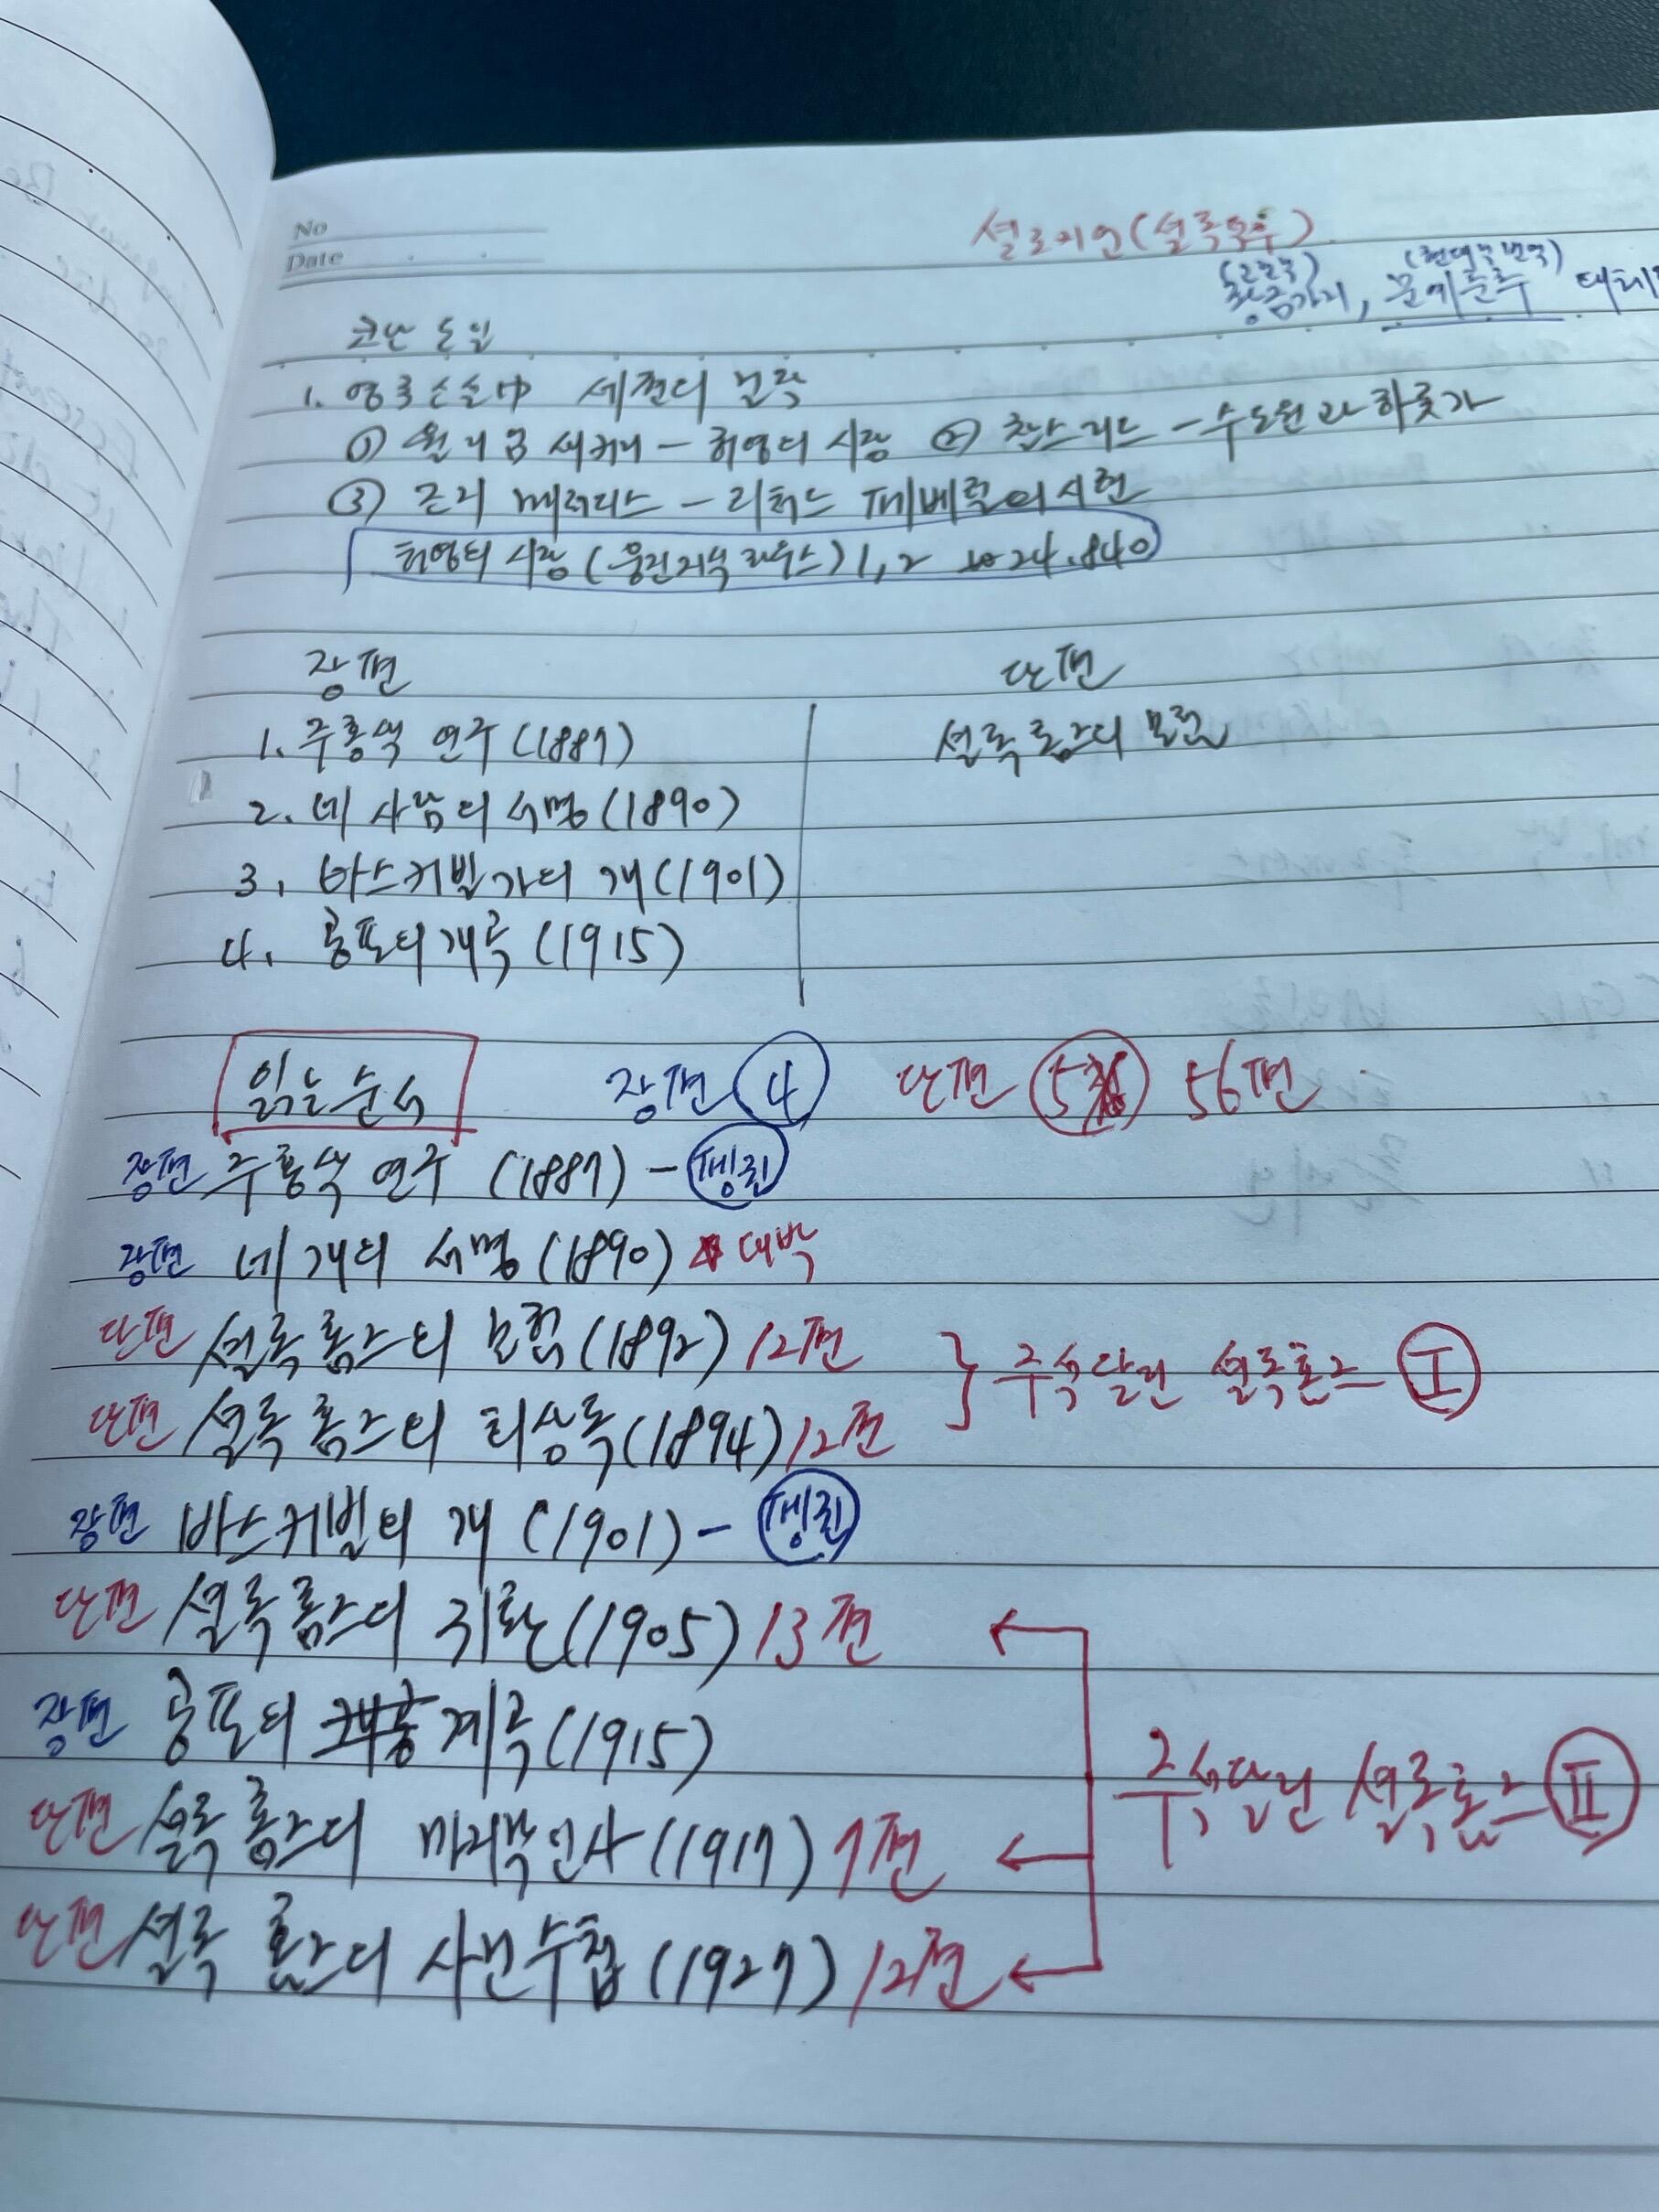 No
Date
셜로키언(셜록추종)
(황금가지, (현대적번역) 문예춘추
코난 도일
1. 영국소설中 세권의 걸작
① 월리엄 새커리 – 허영의 시장 ② 찰스리드 – 수도원과 하룻가
③ 조지 메러디스 – 리처드 페베럴의 시련
허영의 시장 (웅진지식하우스) 1, 2 24.840
장편 단편
1. 주홍색 연구 (1887) 셜록홈즈의 모험
2. 네 사람의 서명 (1890)
3. 바스커빌가의 개 (1901)
4. 공포의 계곡 (1915)
읽는순서 장편 ④ 단편 5 56편
장편 주홍색 연구 (1887) – 펭귄
장편 네 개의 서명 (1890) ★ 대박
단편 셜록홈즈의 모험 (1892) 12편 } 주석달린 셜록홈즈 Ⅰ
단편 셜록 홈즈의 회상록 (1894) 12편
장편 바스커빌의 개 (1901) – 펭귄
단편 셜록홈즈의 귀환 (1905) 13편
장편 공포의 계곡 (1915)
주석달린 셜록홈즈 Ⅱ
단편 셜록 홈즈의 마지막인사 (1917) 7편
단편 셜록 홈즈의 사건수첩 (1927) 12편